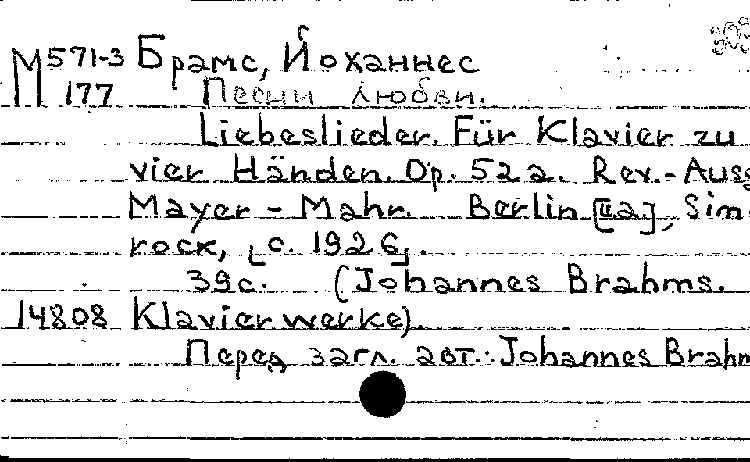 М 571-3 Брамс, Йоханнес
177 Песни любви.
Liebeslieder. Für Klavier zu
vier Händen. Op. 52a. Rev.-Ausg
Mayer-Mahr. Berlin [u.a.], Sim-
rock, [c. 1926].
39с. (Johannes Brahms.
14808 Klavierwerke).
Перед загл. авт.: Johannes Brahm